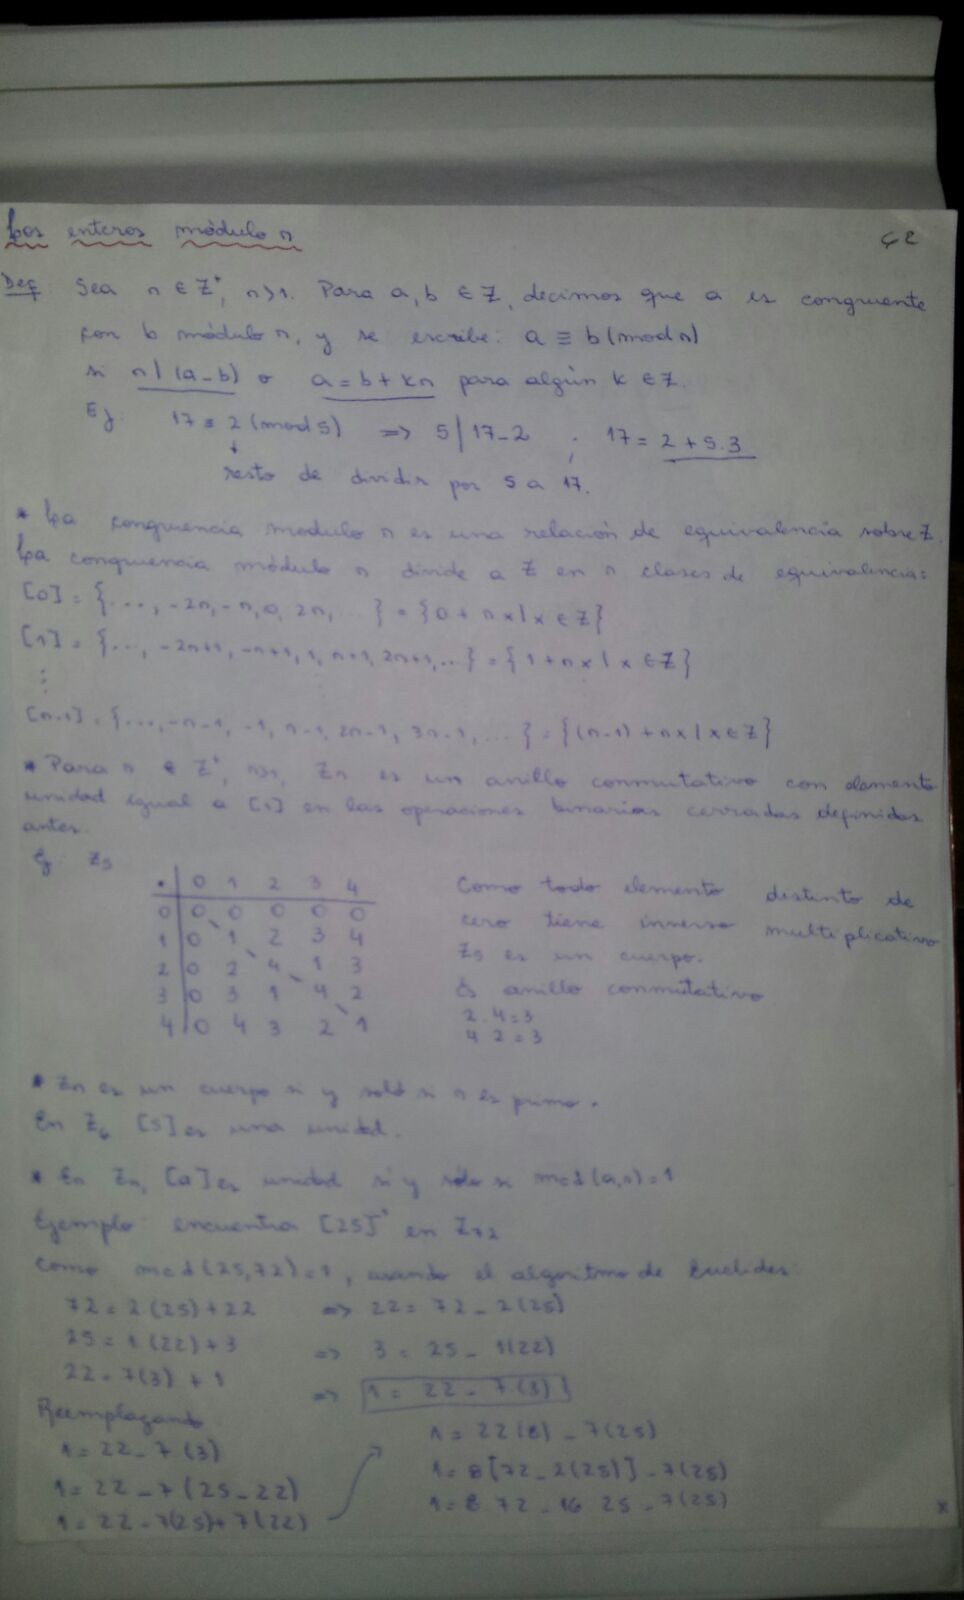 Los enteros módulo n
62
Def: Sea n ∈ Z⁺, n>1. Para a, b ∈ Z, decimos que a es congruente
con b módulo n, y se escribe: a ≡ b (mod n)
si n | (a-b) o a = b + kn para algún k ∈ Z.
Ej: 17 ≡ 2 (mod 5) => 5 | 17-2 ; 17 = 2 + 5.3
↓
resto de dividir por 5 a 17.
* La congruencia modulo n es una relación de equivalencia sobre Z.
La congruencia módulo n divide a Z en n clases de equivalencia:
[0] = {..., -2n, -n, 0, 2n, ...} = {0 + nx | x ∈ Z}
[1] = {..., -2n+1, -n+1, 1, n+1, 2n+1, ...} = {1 + nx | x ∈ Z}
⋮
[n-1] = {..., -n-1, -1, n-1, 2n-1, 3n-1, ...} = {(n-1) + nx | x ∈ Z}
* Para n ∈ Z⁺, n>1, Zn es un anillo conmutativo con elemento
unidad igual a [1] en las operaciones binarias cerradas definidas
antes.
Ej: Z5
• | 0 1 2 3 4
0 | 0 0 0 0 0
1 | 0 1 2 3 4
2 | 0 2 4 1 3
3 | 0 3 1 4 2
4 | 0 4 3 2 1
Como todo elemento distinto de
cero tiene inverso multiplicativo
Z5 es un cuerpo.
Es anillo conmutativo
2.4=3
4.2=3
* Zn es un cuerpo si y solo si n es primo.
En Z6 [5] es una unidad.
* En Zn, [a] es unidad si y sólo si mcd(a,n)=1
Ejemplo: encuentra [25]⁻¹ en Z72
Como mcd(25,72)=1, usando el algoritmo de Euclides:
72 = 2(25)+22 => 22 = 72 - 2(25)
25 = 1(22)+3 => 3 = 25 - 1(22)
22 = 7(3) + 1 => 1 = 22 - 7(3)
Reemplazando
1 = 22 - 7(3)
1 = 22 - 7(25-22)
1 = 22 - 7(25) + 7(22)
1 = 22(8) - 7(25)
1 = 8[72 - 2(25)] - 7(25)
1 = 8 72 - 16 25 - 7(25)